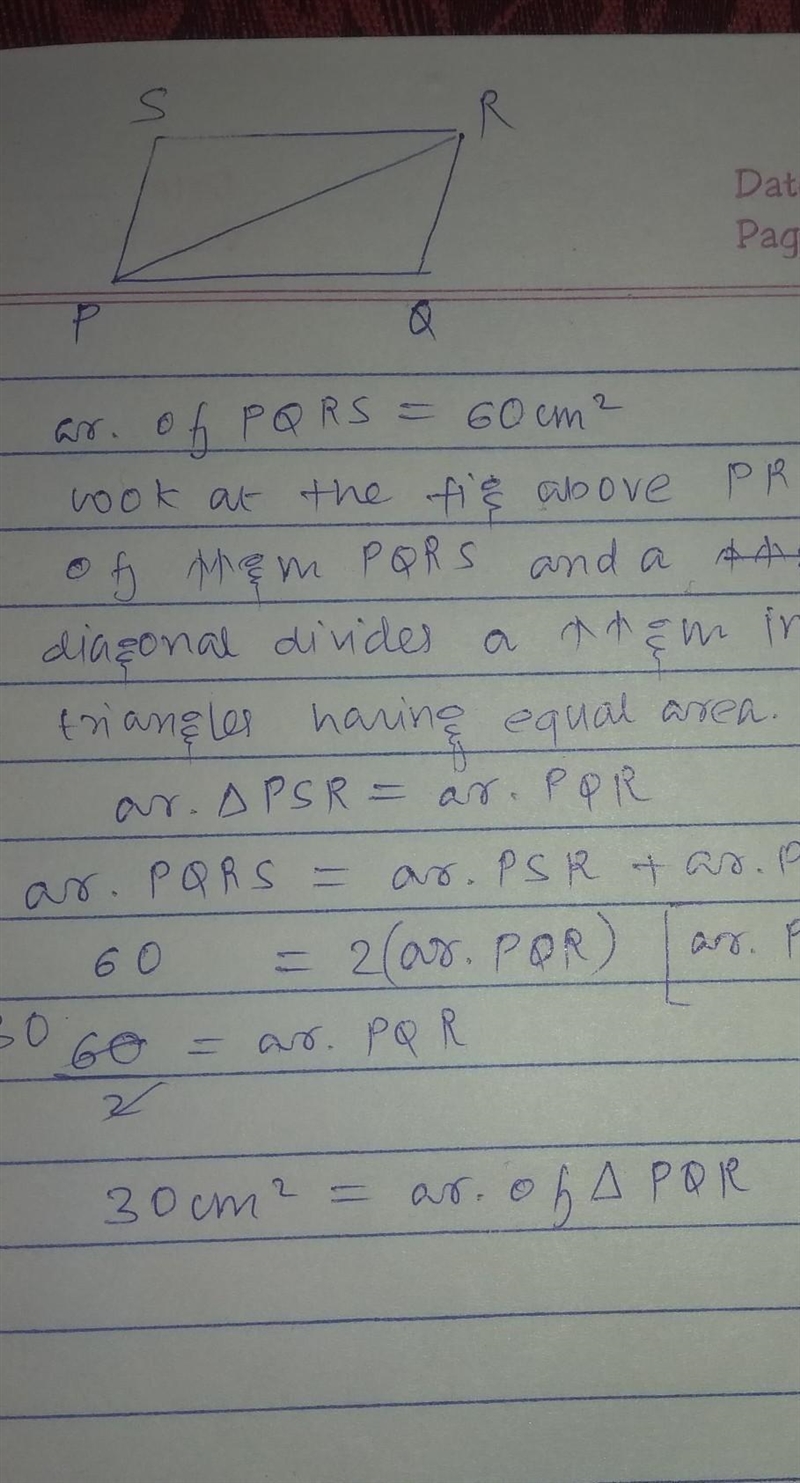 S R
Dat
Pag
P Q
ar. of PQRS = 60 cm²
Look at the fig above PR
of ↑↑gm PQRS and a
diagonal divides a ↑↑gm in
triangles having equal area.
ar. Δ PSR = ar. PQR
ar. PQRS = ar. PSR + ar. P
60 = 2(ar. PQR) [ar. P
30 60/2 = ar. PQR
30 cm² = ar. of Δ PQR